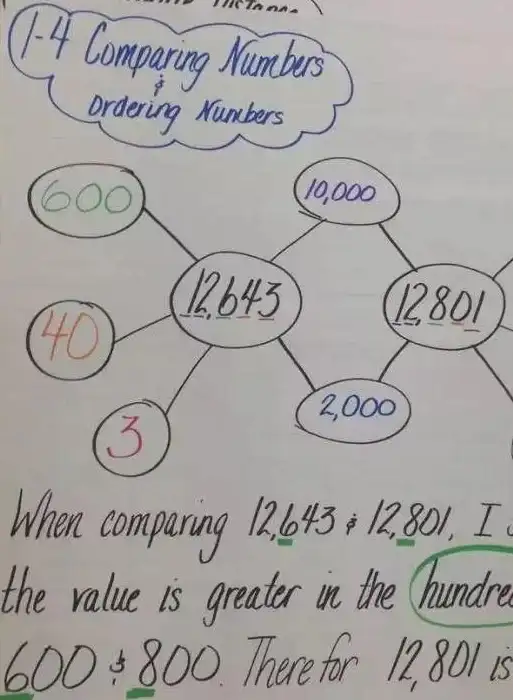 1-4 Comparing Numbers
&
Ordering Numbers
600
10,000
12,643
12,801
40
2,000
3
When comparing 12,643 & 12,801, I
the value is greater in the
600 & 800. There for 12,801 is